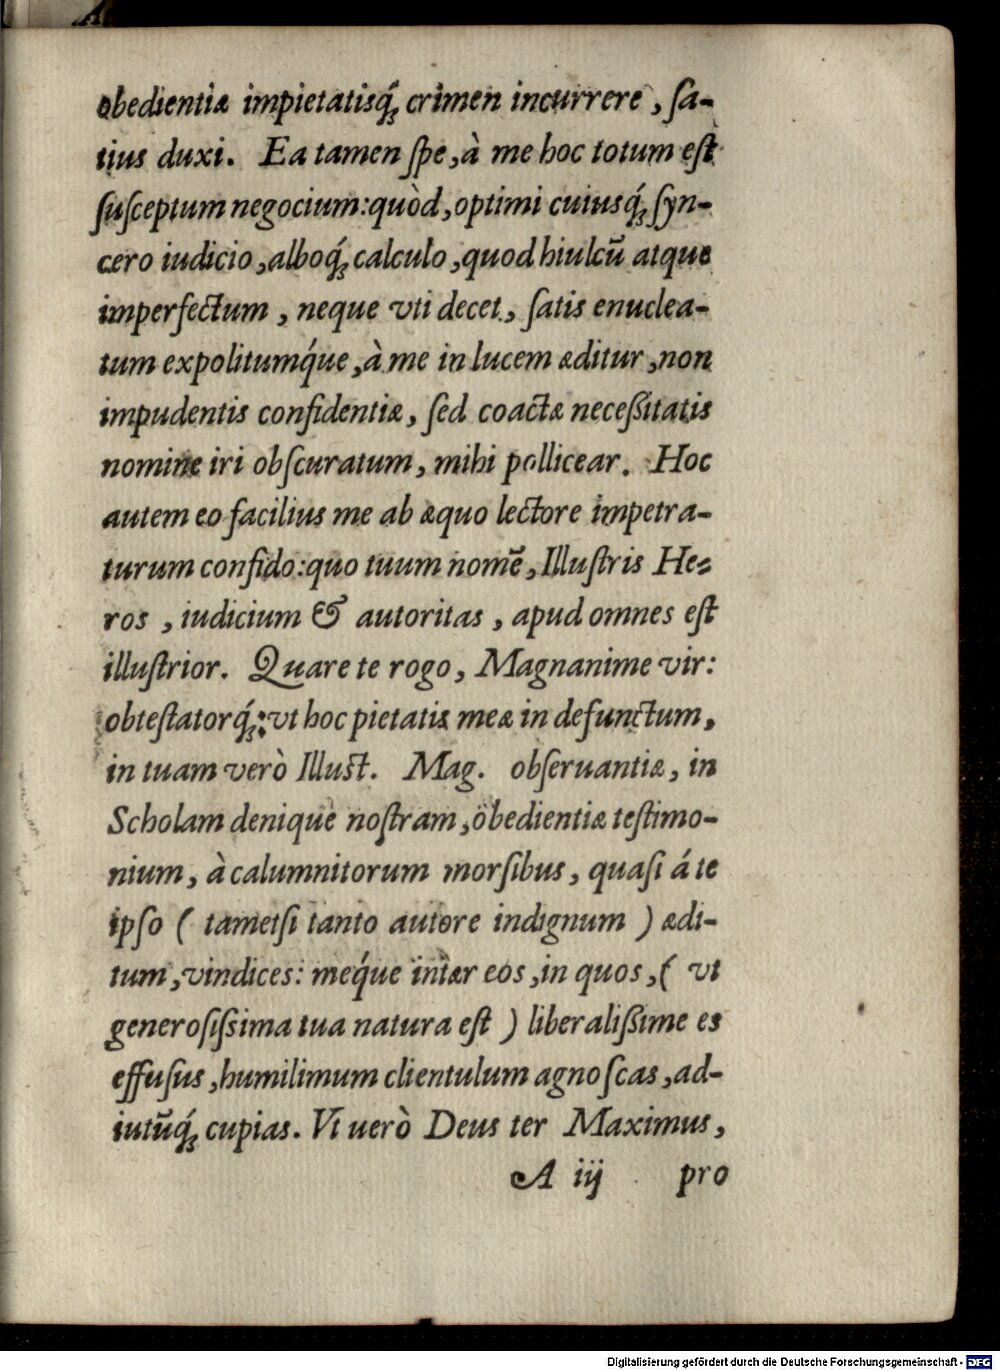 obedientiæ impietatisq́ꝫ crimen incurrere, ſa-
tius duxi. Ea tamen ſpe, à me hoc totum eſt
ſuſceptum negocium: quòd, optimi cuiusq́ꝫ ſyn-
cero iudicio, alboq́ꝫ calculo, quod hiulcũ atque
imperfectum, neque vti decet, ſatis enuclea-
tum expolitumq́ue, à me in lucem æditur, non
impudentis confidentiæ, ſed coactæ neceßitatis
nomine iri obſcuratum, mihi pollicear. Hoc
autem eo facilius me ab æquo lectore impetra-
turum confido: quo tuum nomẽ, Illuſtris He-
ros, iudicium & autoritas, apud omnes eſt
illuſtrior. Quare te rogo, Magnanime vir:
obteſtatorq́ꝫ: vt hoc pietatis meæ in defunctum,
in tuam verò Illuſt. Mag. obſeruantiæ, in
Scholam denique noſtram, obedientiæ teſtimo-
nium, à calumnitorum morſibus, quaſi á te
ipſo ( tametſi tanto autore indignum ) ædi-
tum, vindices: meq́ue intær eos, in quos, ( vt
generoſiſsima tua natura eſt ) liberalißime es
effuſus, humilimum clientulum agnoſcas, ad-
iutũq́ꝫ cupias. Vt uerò Deus ter Maximus,
A iij pro
Digitalisierung gefördert durch die Deutsche Forschungsgemeinschaft - DFG